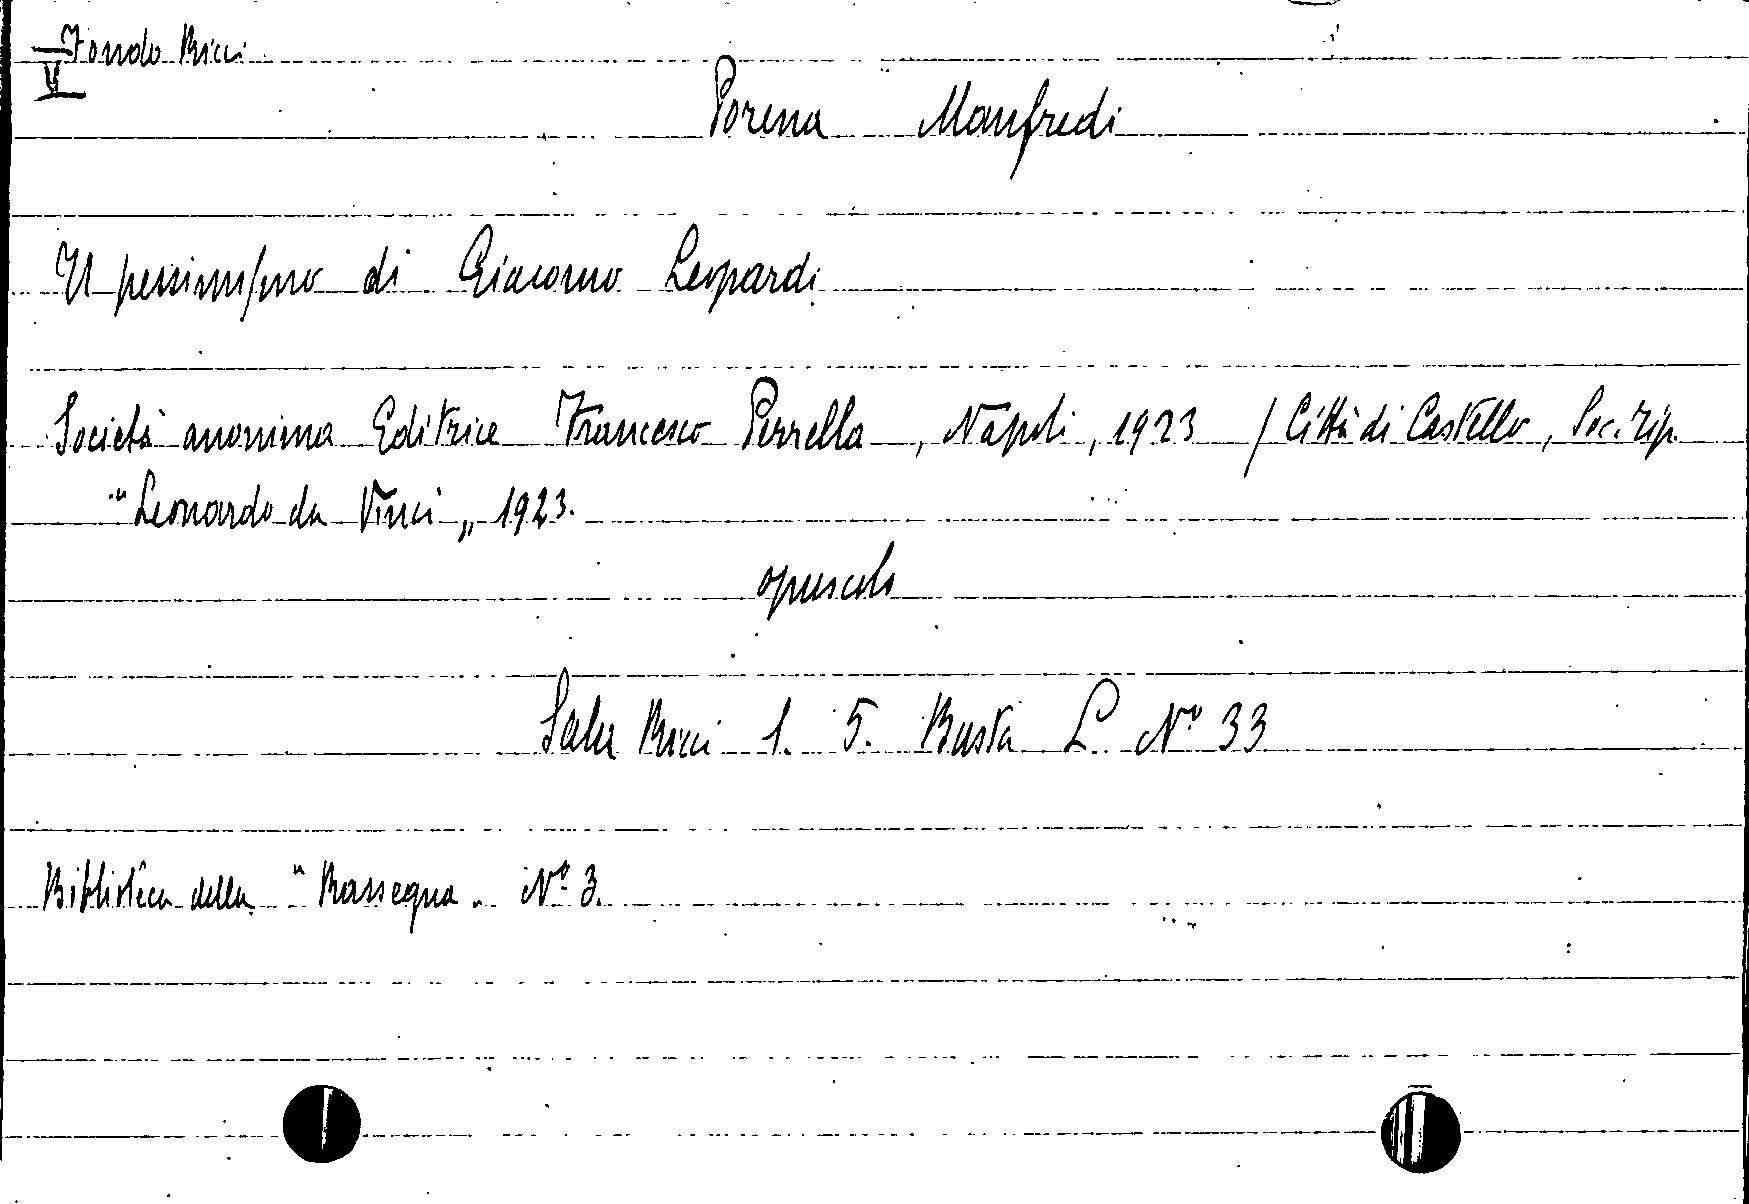 Fondo Ricci
V
Porena Manfredi
Il pessimismo di Giacomo Leopardi
Società anonima Editrice Francesco Perrella, Napoli, 1923 / Città di Castello, Soc. Tip.
"Leonardo da Vinci„ 1923.
opuscolo
Sala Ricci 1. 5. Busta L. Nº 33
Biblioteca della "Rassegna„ Nº 3.